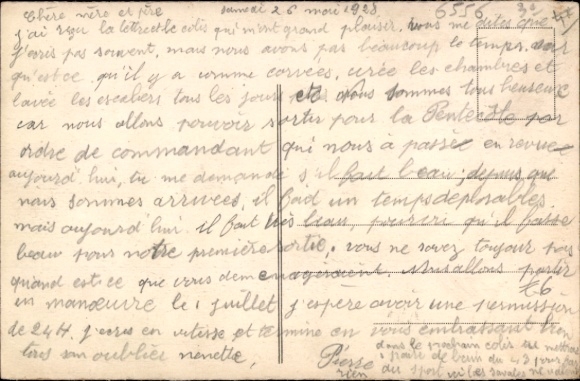 samedi 26 mai 1923
6556
Chère mère et père
j'ai reçu la lettre et le colis qui m'ont grand plaisir, vous me dites que
j'écris pas souvent, mais nous avons pas beaucoup le temps, car
qu'est ce qu'il y a comme corvées, cirée les chambres et
lavée les escaliers tous les jours etc. nous sommes tous heureux
car nous allons pouvoir sortir pour la Pentecôte par
ordre de commandant qui nous à passée en revue
aujourd'hui, tu me demande s'il fait beau; depuis que
nous sommes arrivées, il faid un temps déplorables
mais aujourd'hui il fait très beau pourvu qu'il fasse
beau pour notre première sortie, vous ne savez toujour pas
quand est ce que vous demenageraient. Nous allons partir
en manœuvre le 1 juillet j'espère avoir une permission
de 24 H. j'écris en vitesse et termine en vous embrassant bien
tous san oubliée nenette,
Pierre
dans le prochain colis